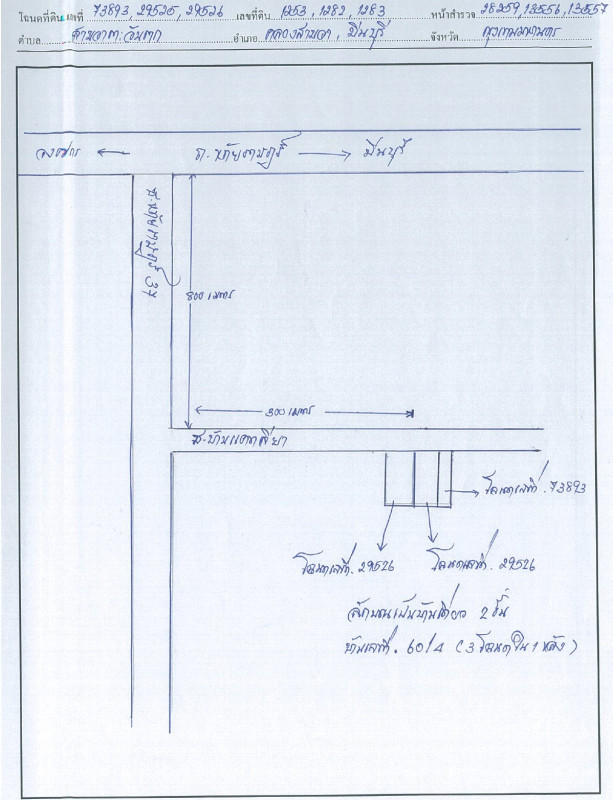 โฉนดที่ดินเลขที่ 73893, 29525, 29526 เลขที่ดิน 1253, 1282, 1283 หน้าสำรวจ 28259, 13556, 13557
ตำบล สามวาตะวันตก อำเภอ คลองสามวา, มีนบุรี จังหวัด กรุงเทพมหานคร
ถ.หทัยราษฎร์ มีนบุรี
ซ.หทัยราษฎร์ 37
800 เมตร
300 เมตร
โฉนดเลขที่. 73893
โฉนดเลขที่. 29526 โฉนดเลขที่. 29526
ลักษณะเป็นบ้านเดี่ยว 2 ชั้น
บ้านเลขที่. 60/4 (3 โฉนดใน 1 หลัง)